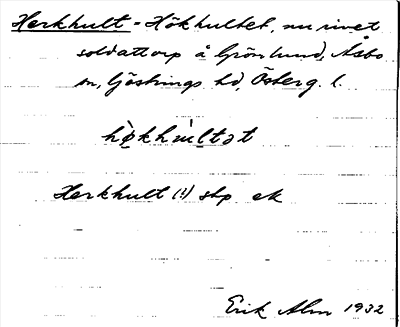 Herkhult - Hökhultet, nu rivet
soldattorp å Grönlund, Åsbo
sn, Göstrings hd, Österg. l.
hö̀khùltət
Herkhult (!) stp ek
Erik Alm 1932